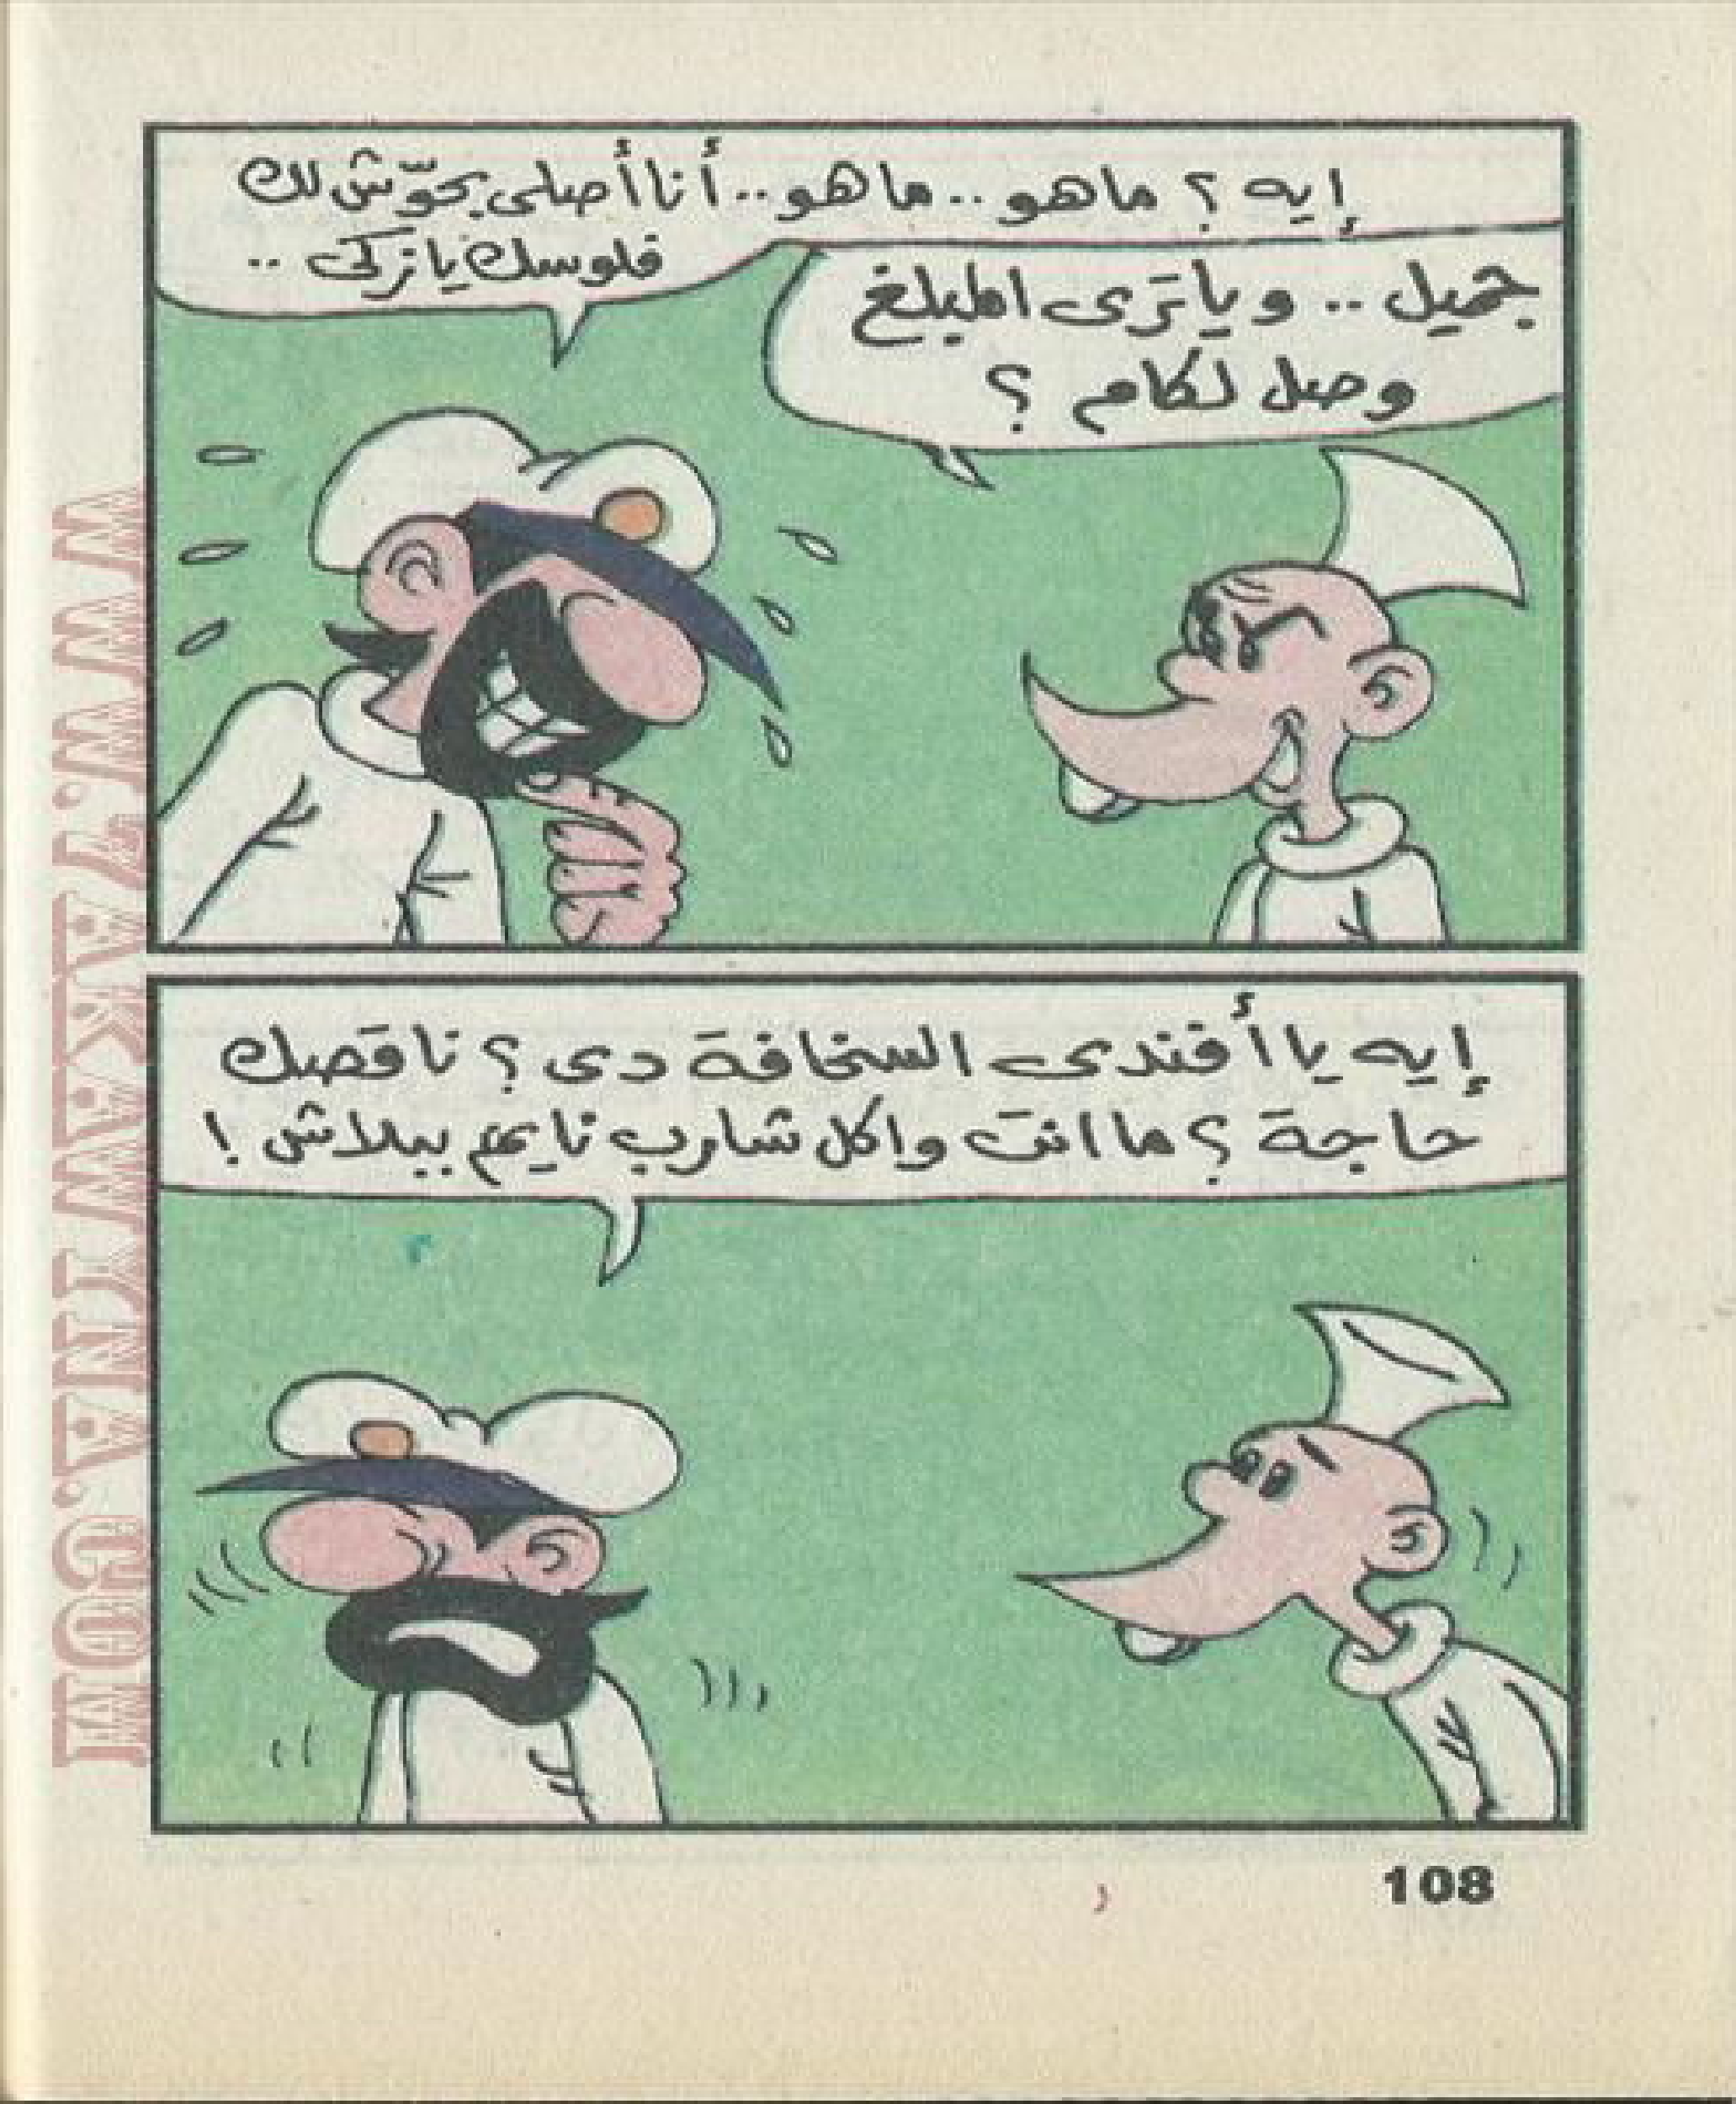 إيه ؟ ماهو .. ماهو .. أنا أصلى بحوّش لك
فلوسك يا زكى ..
جميل .. ويا تَرى المبلغ
وصل لكام ؟
إيه يا أفندى السخافة دى ؟ ناقصك
حاجة ؟ ما انت واكل شارب نايم ببلاش !
108
WWW.7AKAWITNA.COM